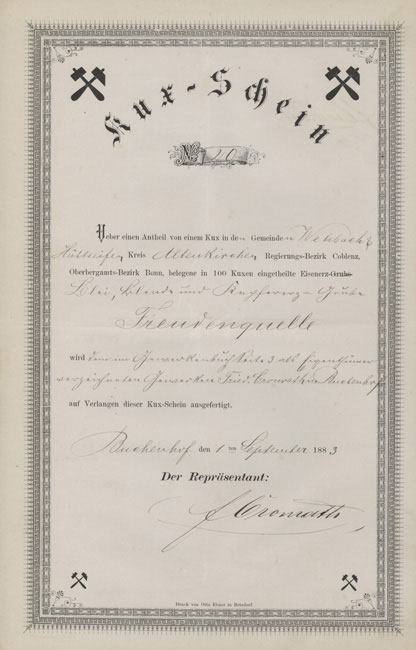 Kux-Schein
No. 20
Ueber einen Antheil von einem Kux in den Gemeinden Wehbach &
Hüttseifen, Kreis Altenkirchen, Regierungs-Bezirk Coblenz,
Oberbergamts-Bezirk Bonn, belegene in 100 Kuxen eingetheilte Eisenerz-Grube
Blei, Blende und Kupfererz-Grube
Freudenquelle
wird dem im Gewerkenbuch Seite 3 als Eigenthümer
verzeichneten Gewerken Fried.
auf Verlangen dieser Kux-Schein ausgefertigt.
Buchenhof den 1ten September 1883
Der Repräsentant:
Druck von Otto Ebner in Betzdorf.